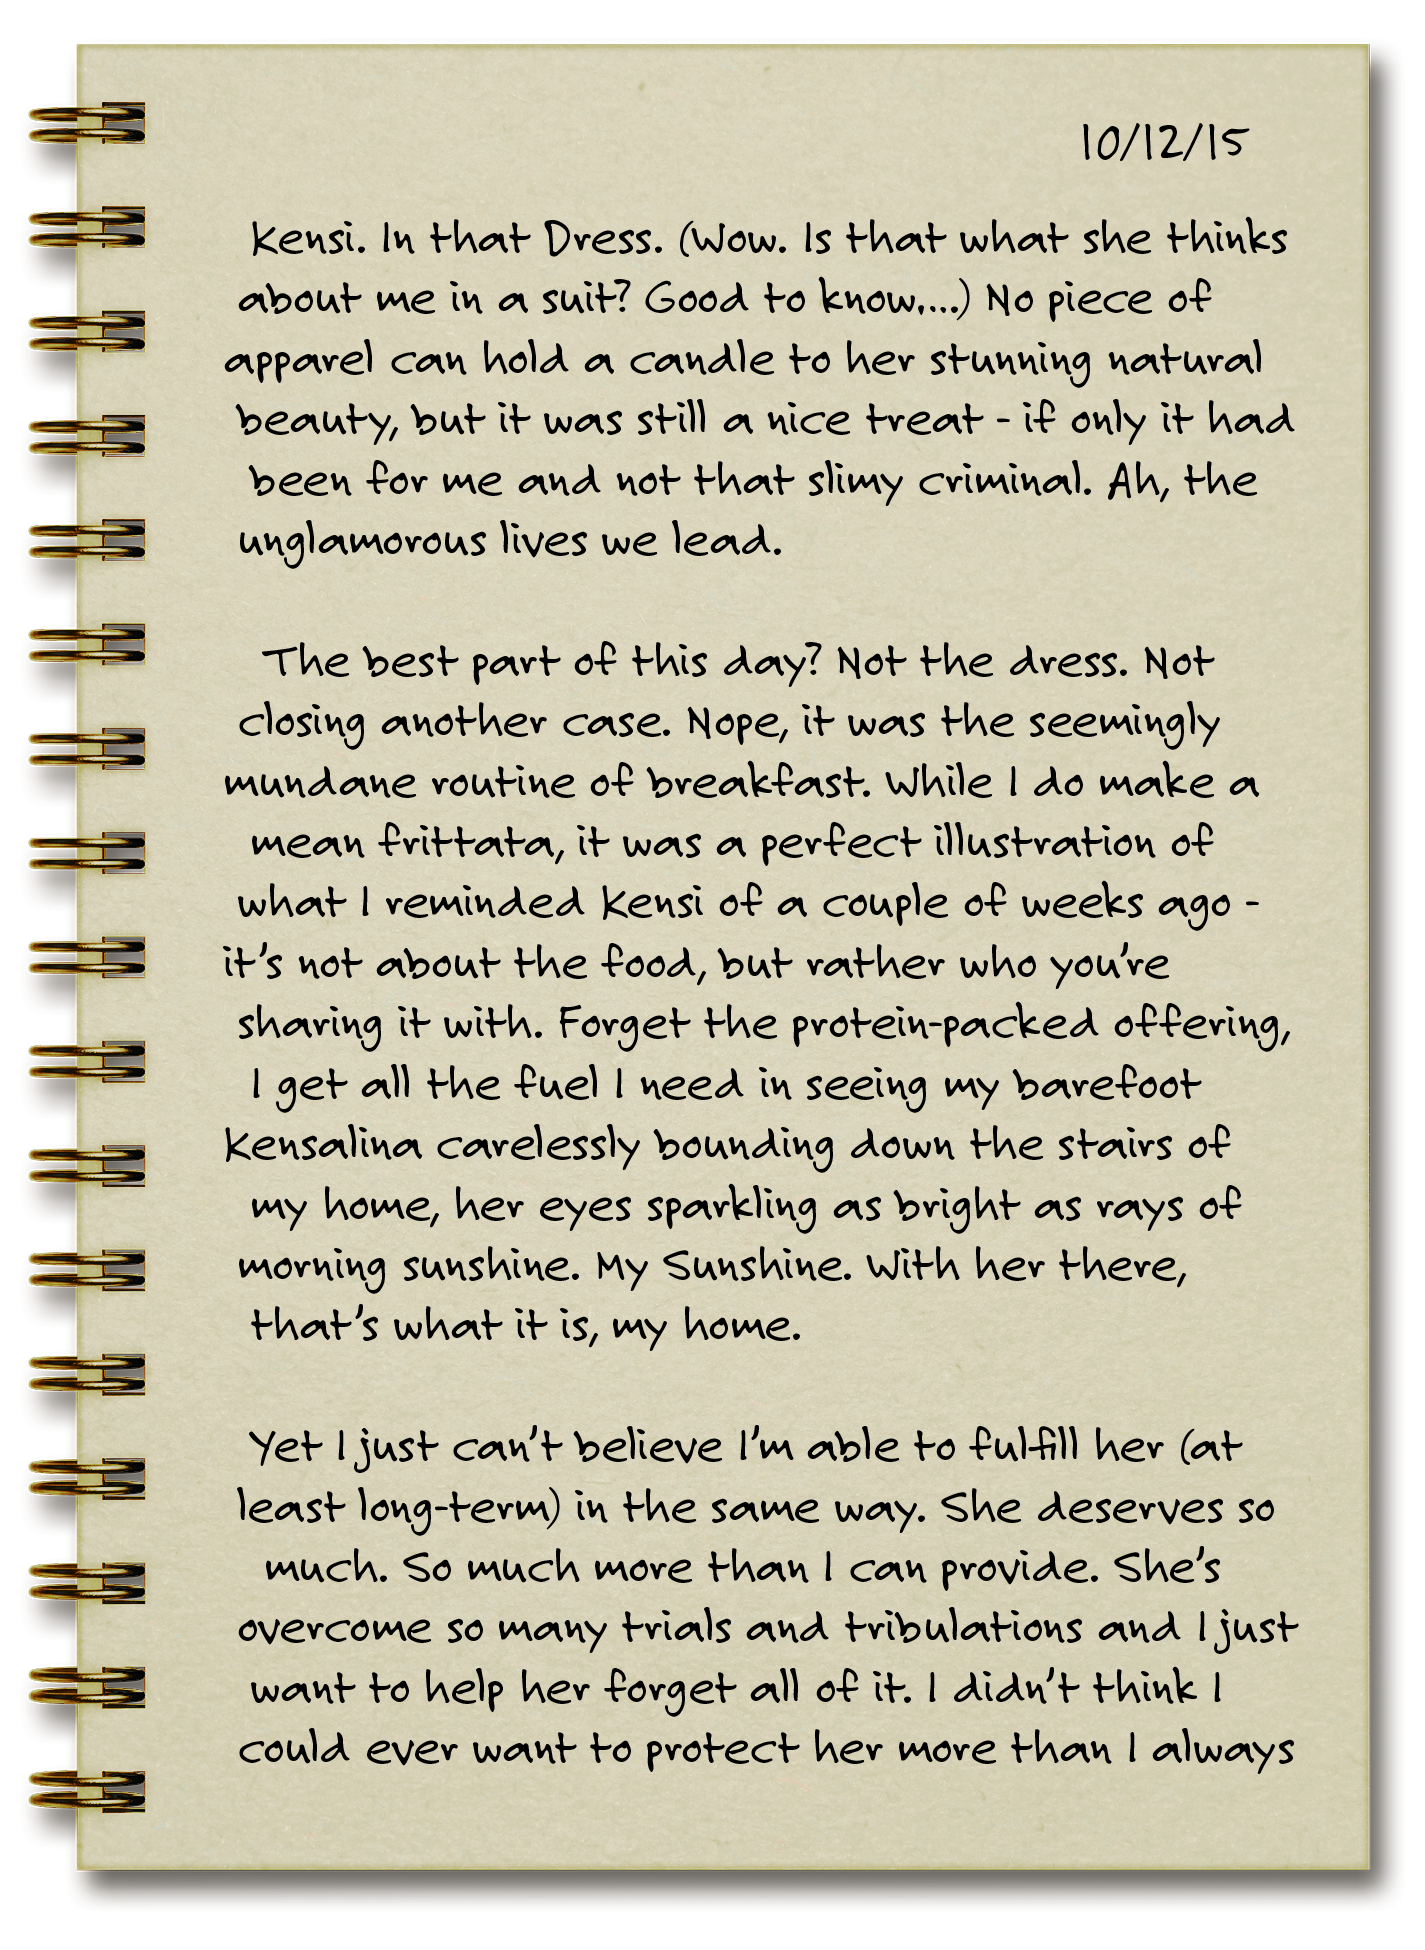 10/12/15
Kensi. In that Dress. (Wow. Is that what she thinks
about me in a suit? Good to know....) No piece of
apparel can hold a candle to her stunning natural
beauty, but it was still a nice treat - if only it had
been for me and not that slimy criminal. Ah, the
unglamorous lives we lead.
The best part of this day? Not the dress. Not
closing another case. Nope, it was the seemingly
mundane routine of breakfast. While I do make a
mean frittata, it was a perfect illustration of
what I reminded Kensi of a couple of weeks ago -
it's not about the food, but rather who you're
sharing it with. Forget the protein-packed offering,
I get all the fuel I need in seeing my barefoot
Kensalina carelessly bounding down the stairs of
my home, her eyes sparkling as bright as rays of
morning sunshine. My Sunshine. With her there,
that's what it is, my home.
Yet I just can't believe I'm able to fulfill her (at
least long-term) in the same way. She deserves so
much. So much more than I can provide. She's
overcome so many trials and tribulations and I just
want to help her forget all of it. I didn't think I
could ever want to protect her more than I always